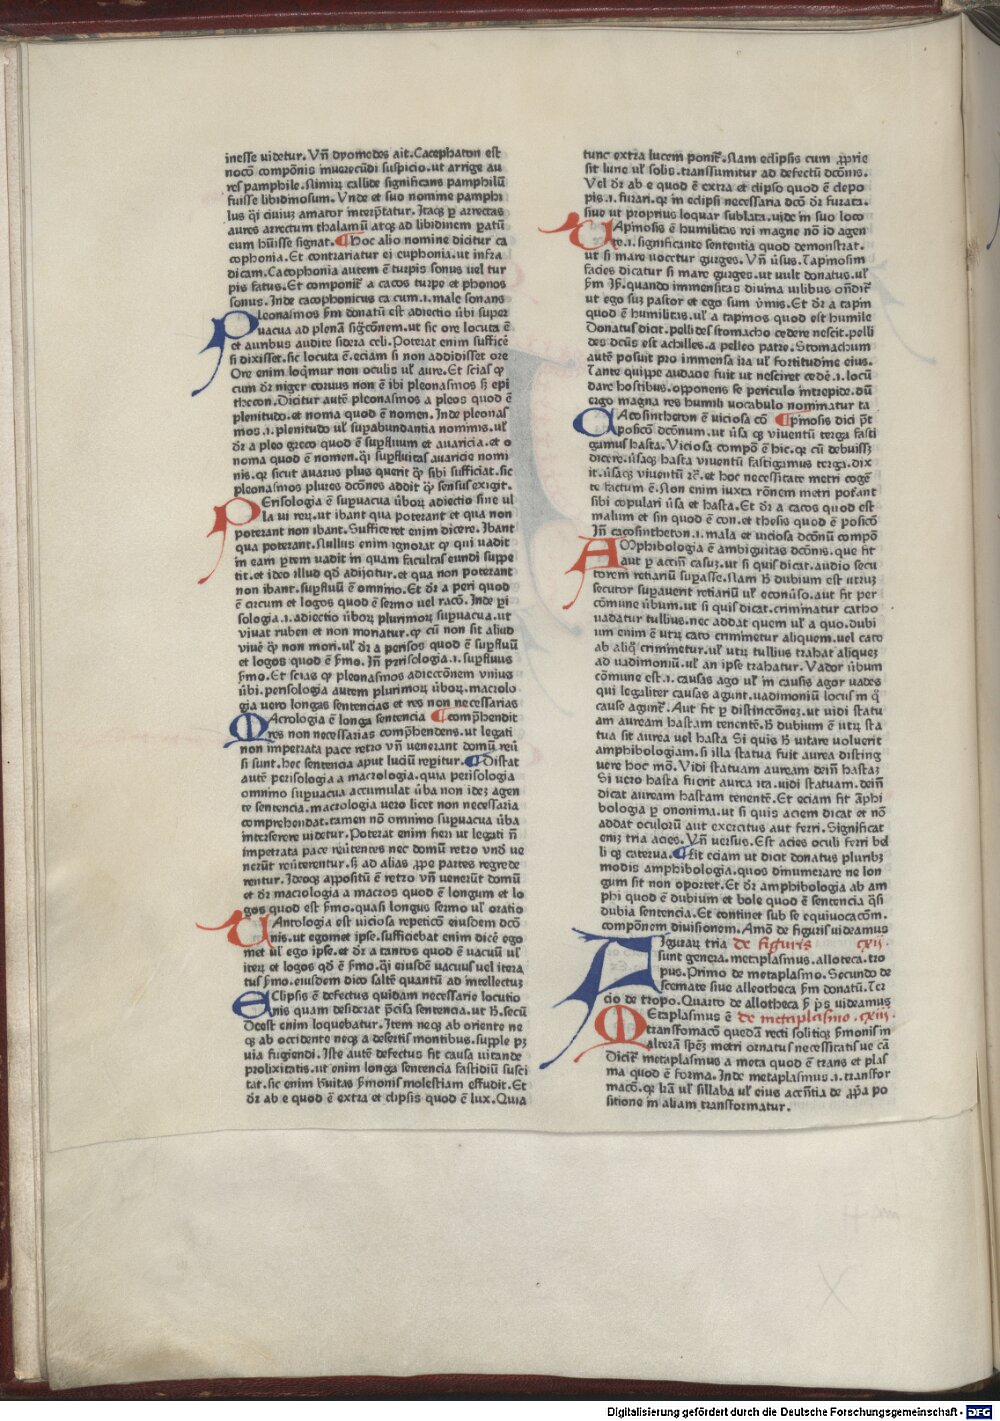 inesse uidetur. Vn̄ dyomedes ait. Cacephaton est
nocō componis inuerecūdi suspicio. ut arrige au
res pamphile. Nimirū callide significans pamphilū
fuisse libidinosum. Vnde et suo nomine pamphi
lus q̄i ciuius amator interp̄tatur. Itaq; ꝑ arrectas
aures arrectum thalamū atq; ad libidinem ꝑatū
eum hūisse signat. ¶ Hoc alio nomine dicitur ca
cophonia. Et contrariatur ei euphonia. ut infra
dicam. Cacophonia autem ē turpis sonus uel tur
pis fatus. Et componit᷑ a cacos turpe et phonos
sonus. Inde cacophonicus ca cum .i. male sonans
Pleonasmos ẜm donatū est adiectio ūbi super
uacua ad plenā sig̅cōnem. ut sic ore locuta ē
et auribus audite sidera celi. Poterat enim sufficē
si dixisset. sic locuta ē. eciam si non addidisset ore
Ore enim loq̄mur non oculis ul̓ aure. Et scias ꝙ
cum dr̄ niger coruus non ē ibi pleonasmos ẜ epi
theton. Dicitur autē pleonasmos a pleos quod ē
plenitudo. et noma quod ē nomen. Inde pleonas
mos .i. plenitudo ul̓ suꝑabundantia nominis. ul̓
dr̄ a pleo greco quod ē suꝑfluum et auaricia. et o
noma quod ē nomen. q̄i suꝑfluitas auaricie nomi
nis. ꝙ sicut auarus plus querit q̄ꝫ sibi sufficiat. sic
pleonasmos plures dcōnes addit q̄ꝫ sensus exigit.
Perisologia ē suꝑuacua ūboꝝ adiectio sine ul
la ui reꝝ. ut ibant qua poterant et qua non
poterant non ibant. Sufficeret enim dicere. Ibant
qua poterant. Nullus enim ignorat ꝙ qui uadit
in eam ꝑtem uadit in quam facultas eundi suppe
tit. et ideo illud qd̄ adijcitur. et qua non poterant
non ibant. suꝑfluū ē omnino. Et dr̄ a peri quod
ē circum et logos quod ē sermo uel racō. Inde ꝑi
sologia .i. adiectio ūboꝝ plurimoꝝ suꝑuacua. ut
viuat ruben et non moriatur. ꝙ cū non sit aliud
viuē q̄ꝫ non mori. ul̓ dr̄ a perisos quod ē suꝑfluū
et logos quod ē ẜmo. Jn̄ perisologia .i. suꝑfluus
ẜmo. Et scias ꝙ pleonasmos adieccōnem vnius
ūbi. perisologia autem plurimoꝝ ūboꝝ. macrolo
gia uero longas sentencias et res non necessarias
Macrologia ē longa sentencia ¶ comp̄hendit
res non necessarias comp̄hendens. ut legati
non impetrata pace retro vn̄ uenerant domū reū
si sunt. hec sentencia aput luciū reꝑitur. ¶ Distat
autē perisologia a macrologia. quia perisologia
omnino suꝑuacua accumulat ūba non idez agen
te sentencia. macrologia uero licet non necessaria
comprehendat. tamen nō omnino suꝑuacua ūba
interserere uidetur. Poterat enim fieri ut legati n̄
impetrata pace reūtentes nec domū retro vnd̓ ue
nerūt reūterentur. ẜ ad alias ꝓpe partes regrede
rentur. Ideoq; appositū ē retro vn̄ uenerūt domū
et dr̄ macrologia a macros quod ē longum et lo
gos quod est ẜmo. quasi longus sermo ul̓ oratio
Tantologia est viciosa repeticō eiusdem dcō
nis. ut egomet ipse. sufficiebat enim dicē ego
met ul̓ ego ipse. et dr̄ a tantos quod ē uacuū ul̓
iteꝝ et logos qd̄ ē ẜmo. q̄i eiusdē uacuus uel itera
tus ẜmo. eiusdem dico saltē quantū ad intellectuz
Eclipsis ē defectus quidam necessarie locutio
nis quam desiderat p̄cisa sentencia. ut ħ. secū
Deest enim loquebatur. Item neq; ab oriente ne
q; ab occidente neq; a desertis montibus. supple pꝫ
via fugiendi. Iste autē defectus fit causa uitande
prolixitatis. ut enim longa sentencia fastidiū susci
tat. sic enim breuitas ẜmonis molestiam effudit. Et
dr̄ ab e quod ē extra et clipsis quod ē lux. Quia
tunc extra lucem ponit᷑. Nam eclipsis cum ꝓprie
sit lune ul̓ solis. transsumitur ad defectū dcōnis.
Vel dr̄ ab e quod ē extra et clipso quod ē clepo
pis .i. furari. ꝙ in eclipsi necessaria dcō dr̄ furata.
siue ut proprius loquar sublata. uide in suo loco
Tapinosis ē humilitas rei magne nō id agen
te .i. significante sententia quod demonstrat.
ut si mare uocetur gurges. Vn̄ ūsus. Tapinosim
facies dicatur si mare gurges. ut uult donatus. ul̓
ẜm Ip̄. quando immensitas diuina uilibus on̄dit᷑
ut ego suz pastor et ego sum v̄mis. Et dr̄ a tapin
quod ē humilitas. ul̓ a tapinos quod est humile
Donatus dicit. pellides stomacho cedere nescit. pelli
des dc̄us est achilles. a pelleo patre. Stomachum
autē posuit pro immensa ira ul̓ fortitudine eius.
Tante quippe audacie fuit ut nesciret cedē .i. locū
dare hostibus. opponens se periculo intrepide. dū
ergo magna res humili uocabulo nominatur ta
Cacosintheton ē viciosa cō ¶ pinosis dici pōt
posicō dcōnum. ut ūsa q; viuentū terga fasti
gamus hasta. Viciosa compō ē hic. ꝙ cū debuissz
dicere. ūsaq; hasta viuentū fastigamus terga. dix
it. ūsaq; viuentū ꝛc̄. et hoc necessitate metri cogē
te factum ē. Non enim iuxta rōnem metri poťant
sibi copulari ūsa et hasta. Et dr̄ a cacos quod est
malum et sin quod ē con. et thesis quod ē posicō
Jn̄ cacosintheton .i. mala et viciosa dcōnū compō
Amphibologia ē ambiguitas dcōnis. que fit
aut ꝑ accn̄m casuz. ut si quis dicat. audio secu
torem retiariū suꝑasse. Nam ħ dubium est utruz
secutor suꝑauerit retiariū ul̓ econūso. aut fit per
cōmune ūbum. ut si quis dicat. criminatur catho
uadatur tullius. nec addat quem ul̓ a quo. dubi
um enim ē utꝝ cato criminetur aliquem. uel cato
ab aliq̊ criminetur. ul̓ utꝝ tullius trahat aliquez
ad uadimoniū. ul̓ an ipse trahatur. Vador ūbum
cōmune est .i. causas ago ul̓ in causis agor uades
qui legaliter causas agunt. uadimoniū locus in q̊
cause agunt᷑. Aut fit ꝑ distinccōnez. ut uidi statu
am auream hastam tenentē. ħ dubium ē utꝝ sta
tua sit aurea uel hasta Si quis ħ uitare uoluerit
amphibologiam. si illa statua fuit aurea disting
uere hoc mō. Vidi statuam auream dein̄ hastaz
Si uero hasta fuerit aurea ita. uidi statuam. dein̄
dicat auream hastam tenentē. Et eciam fit āphi
bologia ꝑ ononima. ut si quis aciem dicat et nō
addat oculorū aut exercitus aut ferri. Significat
eniz tria acies. Vn̄ uersus. Est acies oculi ferri bel
li q; caterua. ¶ Fit eciam ut dicit donatus plurib;
modis amphibologia. quos dinumerare ne lon
gum sit non oportet. Et dr̄ amphibologia ab am
phi quod ē dubium et bole quod ē sentencia q̄si
dubia sentencia. Et continet sub se equiuocacōm.
componem diuisionem. Amō de figuris uideamus
Figuraꝝ tria de figuris cxij.
sunt genera. metaplasmus. alloteca. tro
pus. Primo de metaplasmo. Secundo de
scemate siue alleotheca ẜm donatū. Ter
cio de tropo. Quarto de allotheca ẜm p̄s uideamus
Metaplasmus ē de metaplasmo. cxiij.
transfomacō quedā recti solitiq; ẜmonis in
alterā spēz metri ornatus necessitatisue cā
Dicit᷑ metaplasmus a meta quod ē trans et plas
ma quod ē forma. Inde metaplasmus .i. transfor
macō. ꝙ lr̄a ul̓ sillaba ul̓ eius accn̄tia de ꝓp̄a po
sitione in aliam transformatur.
Digitalisierung gefördert durch die Deutsche Forschungsgemeinschaft - DFG